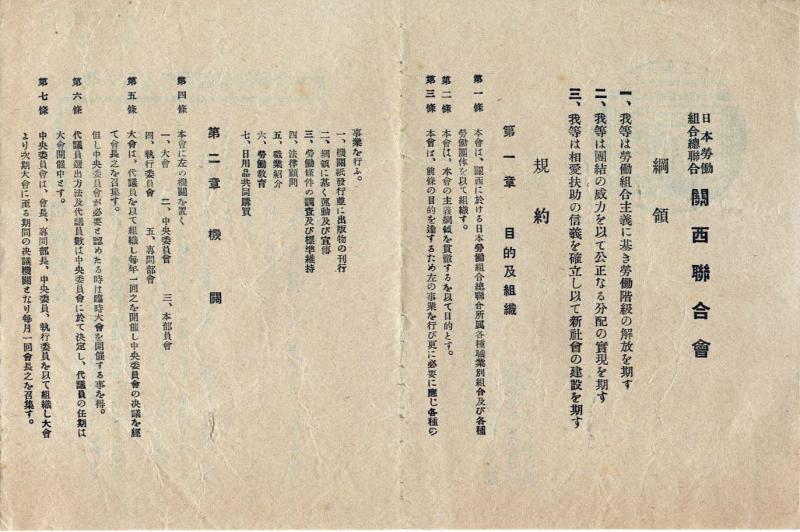 日本勞働
組合總聯合
關西聯合會
綱領
一、我等は勞働組合主義に基き勞働階級の解放を期す
二、我等は團結の威力を以て公正なる分配の實現を期す
三、我等は相愛扶助の信義を確立し以て新社會の建設を期す
規約
第一章 目的及組織
第一條 本會は、關西に於ける日本勞働組合總聯合所屬各種職業別組合及び各種
勞働團体を以て組織す。
第二條 本會は、本會の主義綱領を貫徹するを以て目的とす。
第三條 本會は、前條の目的を達するため左の事業を行び更に必要に應じ各種の
事業を行ふ。
一、機關紙發行並に出版物の刊行
二、綱領に基く運動及び宣傳
三、勞働條件の調査及び標準維持
四、法律顧問
五、職業紹介
六、勞働教育
七、日用品共同購買
第二章 機關
第四條 本會に左の機關を置く
一、大會 二、中央委員會 三、本部員會
四、執行委員會 五、專問部會
第五條 大會は、代議員を以て組織し毎年一回之を開催し中央委員會の决議を經
て會長之を召集す。
但し中央委員會が必要と認めたる時は臨時大會を開催する事を得。
第六條 代議員選出方法及代議員數は中央委員會に於て决定し、代議員の任期は
大會開催中とす。
第七條 中央委員會は、會長、專問部長、中央委員、執行委員を以て組織し大會
より次期大會に至る期間の决議機關となり毎月一回會長之を召集す。